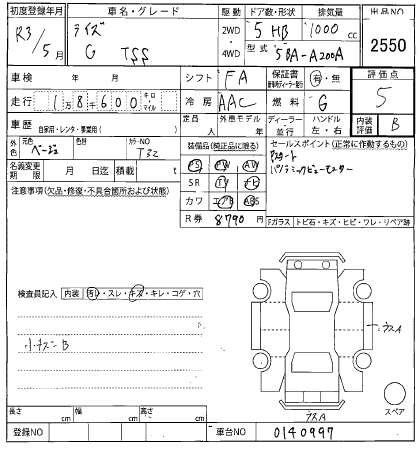 初度登録年月 車名・グレード 駆動 ドア数・形状 排気量 出品NO
R3/5月 ライズ G TSS 2WD 4WD 5 HB 1000 cc 2550
型式 5BA-A200A
車検 年 月 シフト FA 保証書 有・無 評価点 5
走行 1 8 6 0 0 キロ マイル 冷房 AAC 燃料 G
車歴 自家用・レンタ・事業用( ) 定員 人 外車モデル 年 ディーラー 並行 ハンドル 左・右 内装評価 B
外色 元色 ベージュ 色替 カラーNO T32 装備品(純正品に限る) セールスポイント(正常に作動するもの)
名義変更期限 月 日迄 積載 t PS PW AW Pスタート
注意事項(欠品・修復・不具合箇所および状態) SR TV ナビ パノラミックビューモニター
カワ エアB ABS
R券 8790円 Fガラス トビ石・キズ・ヒビ・ワレ・リペア跡
検査員記入 内装 汚レ・スレ・キズ・キレ・コゲ・穴
小キズ-B
うスA
うスA スペア
長さ cm 幅 cm 高さ cm
登録NO 車台NO 0140997